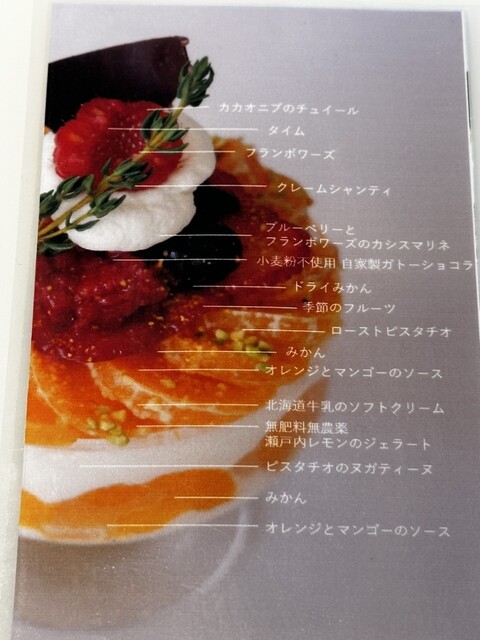 カカオニブのチュイール
タイム
フランボワーズ
クレームシャンティ
ブルーベリーと
フランボワーズのカシスマリネ
小麦粉不使用 自家製ガトーショコラ
ドライみかん
季節のフルーツ
ローストピスタチオ
みかん
オレンジとマンゴーのソース
北海道牛乳のソフトクリーム
無肥料無農薬
瀬戸内レモンのジェラート
ピスタチオのヌガティーヌ
みかん
オレンジとマンゴーのソース